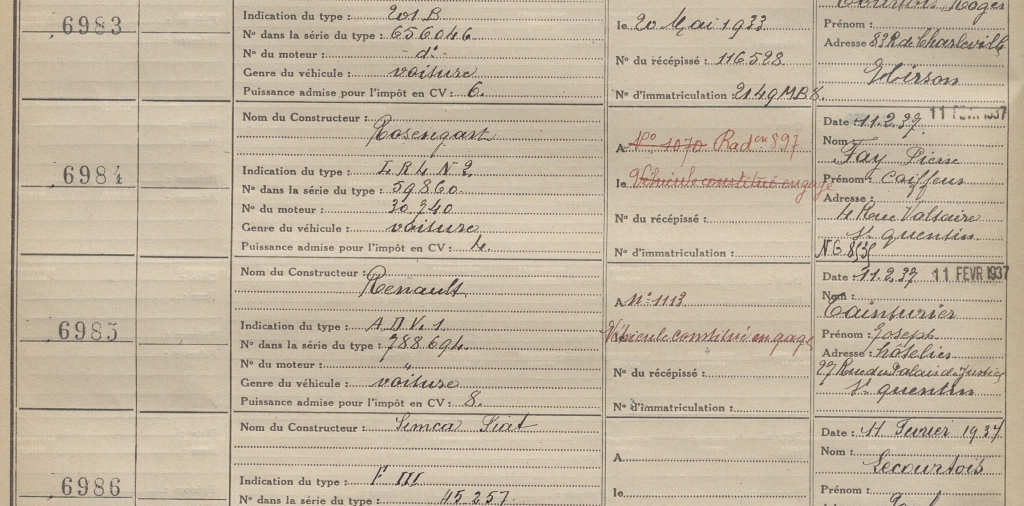 6983
Indication du type : 201 B
N° dans la série du type : 656046
N° du moteur : d°
Genre du véhicule : voiture
Puissance admise pour l'impôt en CV : 6.
le 20 Mai 1933
N° du récépissé : 116.528
N° d'immatriculation 2149 M.B 8.
Prénom :
Adresse 83 R de Charleville
Hirson
6984
Nom du Constructeur :
Rosengart
Indication du type : L R 4 N 2
N° dans la série du type : 59860
N° du moteur : 30740
Genre du véhicule : voiture
Puissance admise pour l'impôt en CV : 4.
A N° 1070 Rad on 897
le Véhicule constitué en gage
N° du récépissé :
N° d'immatriculation :
Date : 11.2.37. 11 FEVR 1937
Nom
Fay Pierre
Prénom : Coiffeur
Adresse :
4 Rue Voltaire
St quentin
N.G. 8535
6985
Nom du Constructeur :
Renault
Indication du type : A D V. 1
N° dans la série du type : 788694
N° du moteur : "
Genre du véhicule : voiture
Puissance admise pour l'impôt en CV : 8.
A N° 1113
Véhicule constitué en gage
N° du récépissé :
N° d'immatriculation :
Date : 11.2.37 11 FEVR 1937
Nom :
Cainturier
Prénom : Joseph
Adresse : hôtelier
27 Rue du Palais de Justice
St quentin
6986
Nom du Constructeur : Simca Fiat
Indication du type : F III
N° dans la série du type : 45.257
A
le
Date : 11 Fevrier 1937
Nom :
Lecourtois
Prénom :